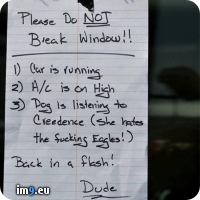 Please Do NOT
Break Window!!
1) Car is running
2) A/C is on High
3) Dog is listening to
Creedence (She hates
the fucking Eagles!)
Back in a flash!
Dude
im9.eu